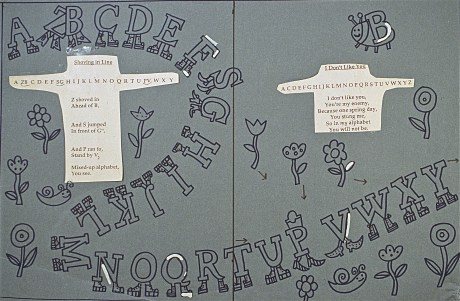 A Z B C D E F S G H I J K L M N O Q R T U P V W X Y
Shoving in Line
A ZB C D E F SG H I J K L M N O Q R T U PV W X Y
Z shoved in
Ahead of B,
And S jumped
In front of G",
And P ran to,
Stand by V,
Mixed-up alphabet,
You see.
B
I Don't Like You
A C D E F G H I J K L M N O P Q R S T U V W X Y Z
I don't like you,
You're my enemy,
Because one spring day,
You stung me,
So in my alphabet
You will not be.